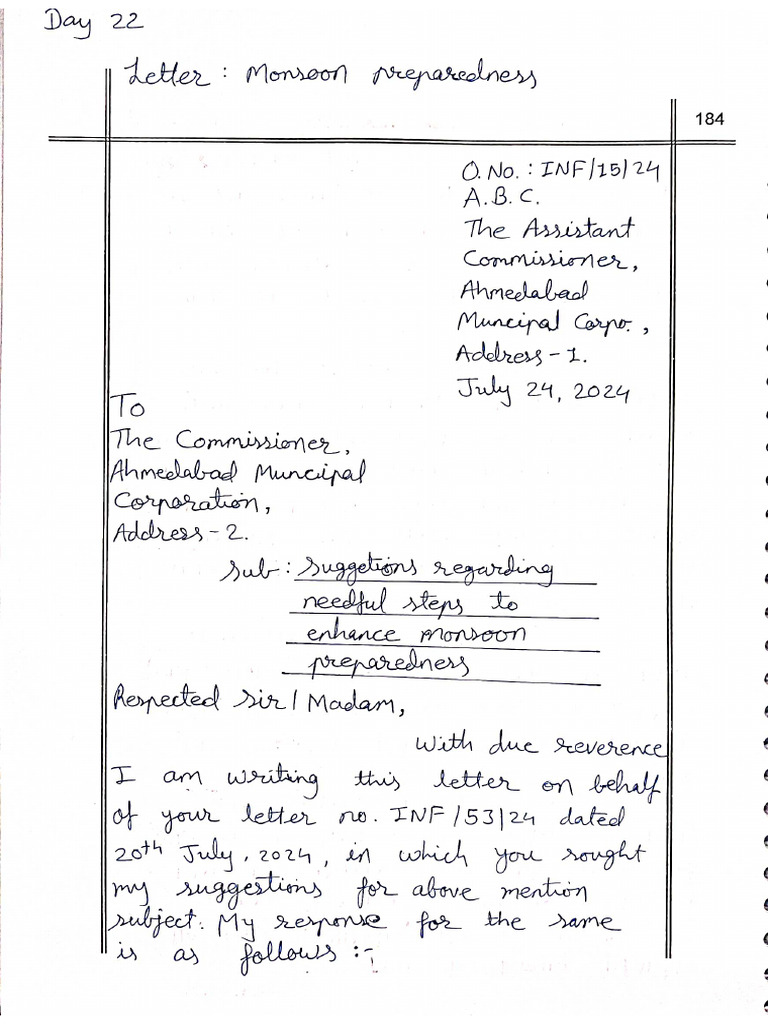 Day 22
Letter : Monsoon preparedness
184
O. No. : INF/15/24
A.B.C.
The Assistant
Commissioner,
Ahmedabad
Muncipal Corpo. ,
Address-1.
July 24, 2024
To
The Commissioner,
Ahmedabad Muncipal
Corporation,
Address-2.
Sub : suggetions regarding
needful steps to
enhance monsoon
preparedness
Respected Sir/Madam,
With due reverence
I am writing this letter on behalf
of your letter no. INF/53/24 dated
20th July, 2024, in which you sought
my suggestions for above mention
subject. My response for the same
is as follows :-